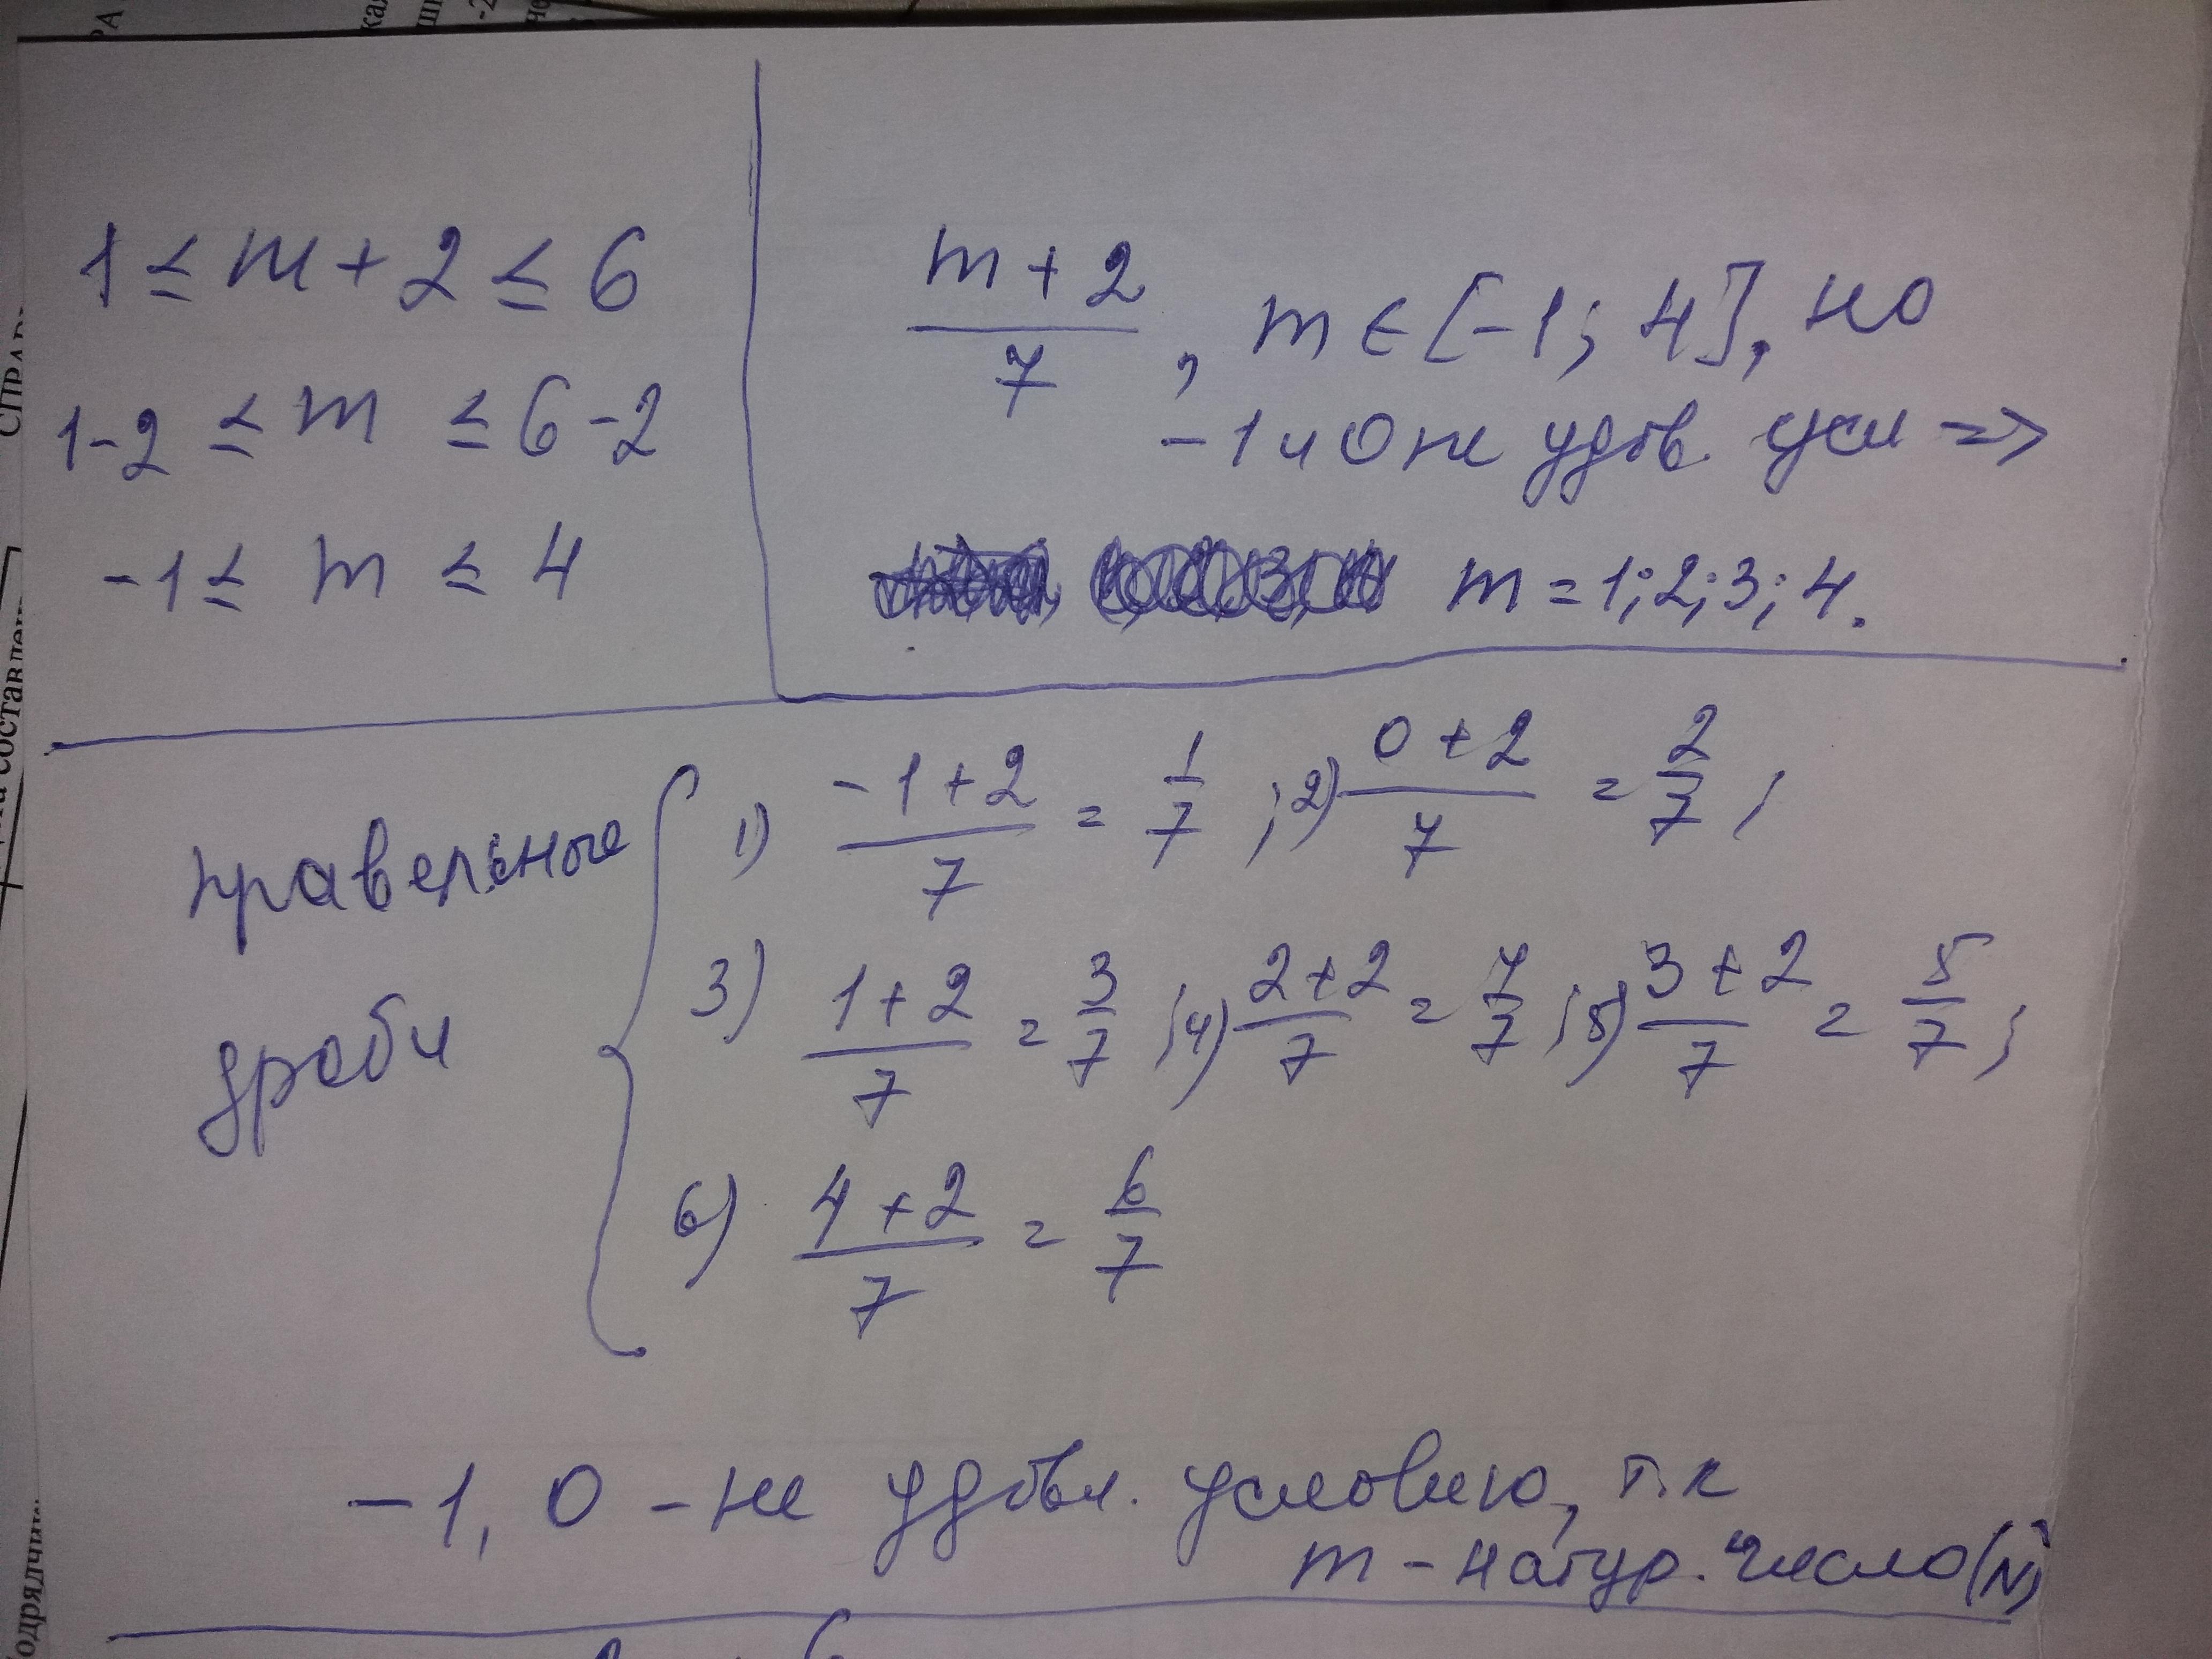 1 ≤ m + 2 ≤ 6
1-2 ≤ m ≤ 6-2
-1 ≤ m ≤ 4
(m + 2)/7, m ∈ [-1; 4], но
-1 и 0 не удов. усл =>
m = 1; 2; 3; 4.
правельные дроби
1) (-1+2)/7 = 1/7 ; 2) (0+2)/7 = 2/7 ;
3) (1+2)/7 = 3/7 ; 4) (2+2)/7 = 4/7 ; 5) (3+2)/7 = 5/7 ;
6) (4+2)/7 = 6/7
-1, 0 - не удовл. условию, т.к
m - натур. число (N)